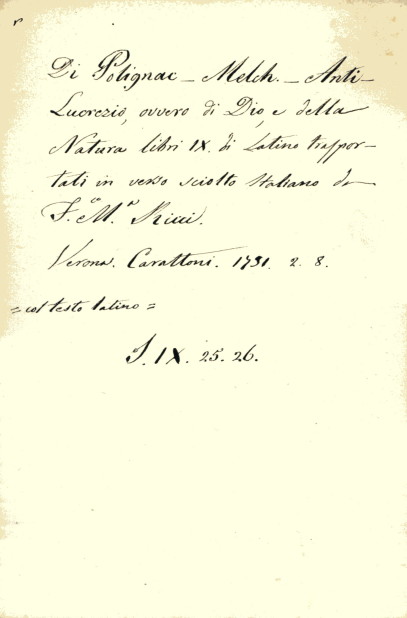 Di Polignac – Melch. – Anti-
Lucrezio, ovvero di Dio, e della
Natura libri IX. di Latino traspor-
tati in verso sciolto Italiano da
F.co M.a Ricci.
Verona. Carattoni. 1751. 2. 8.
= col testo latino =
S. IX. 25. 26.